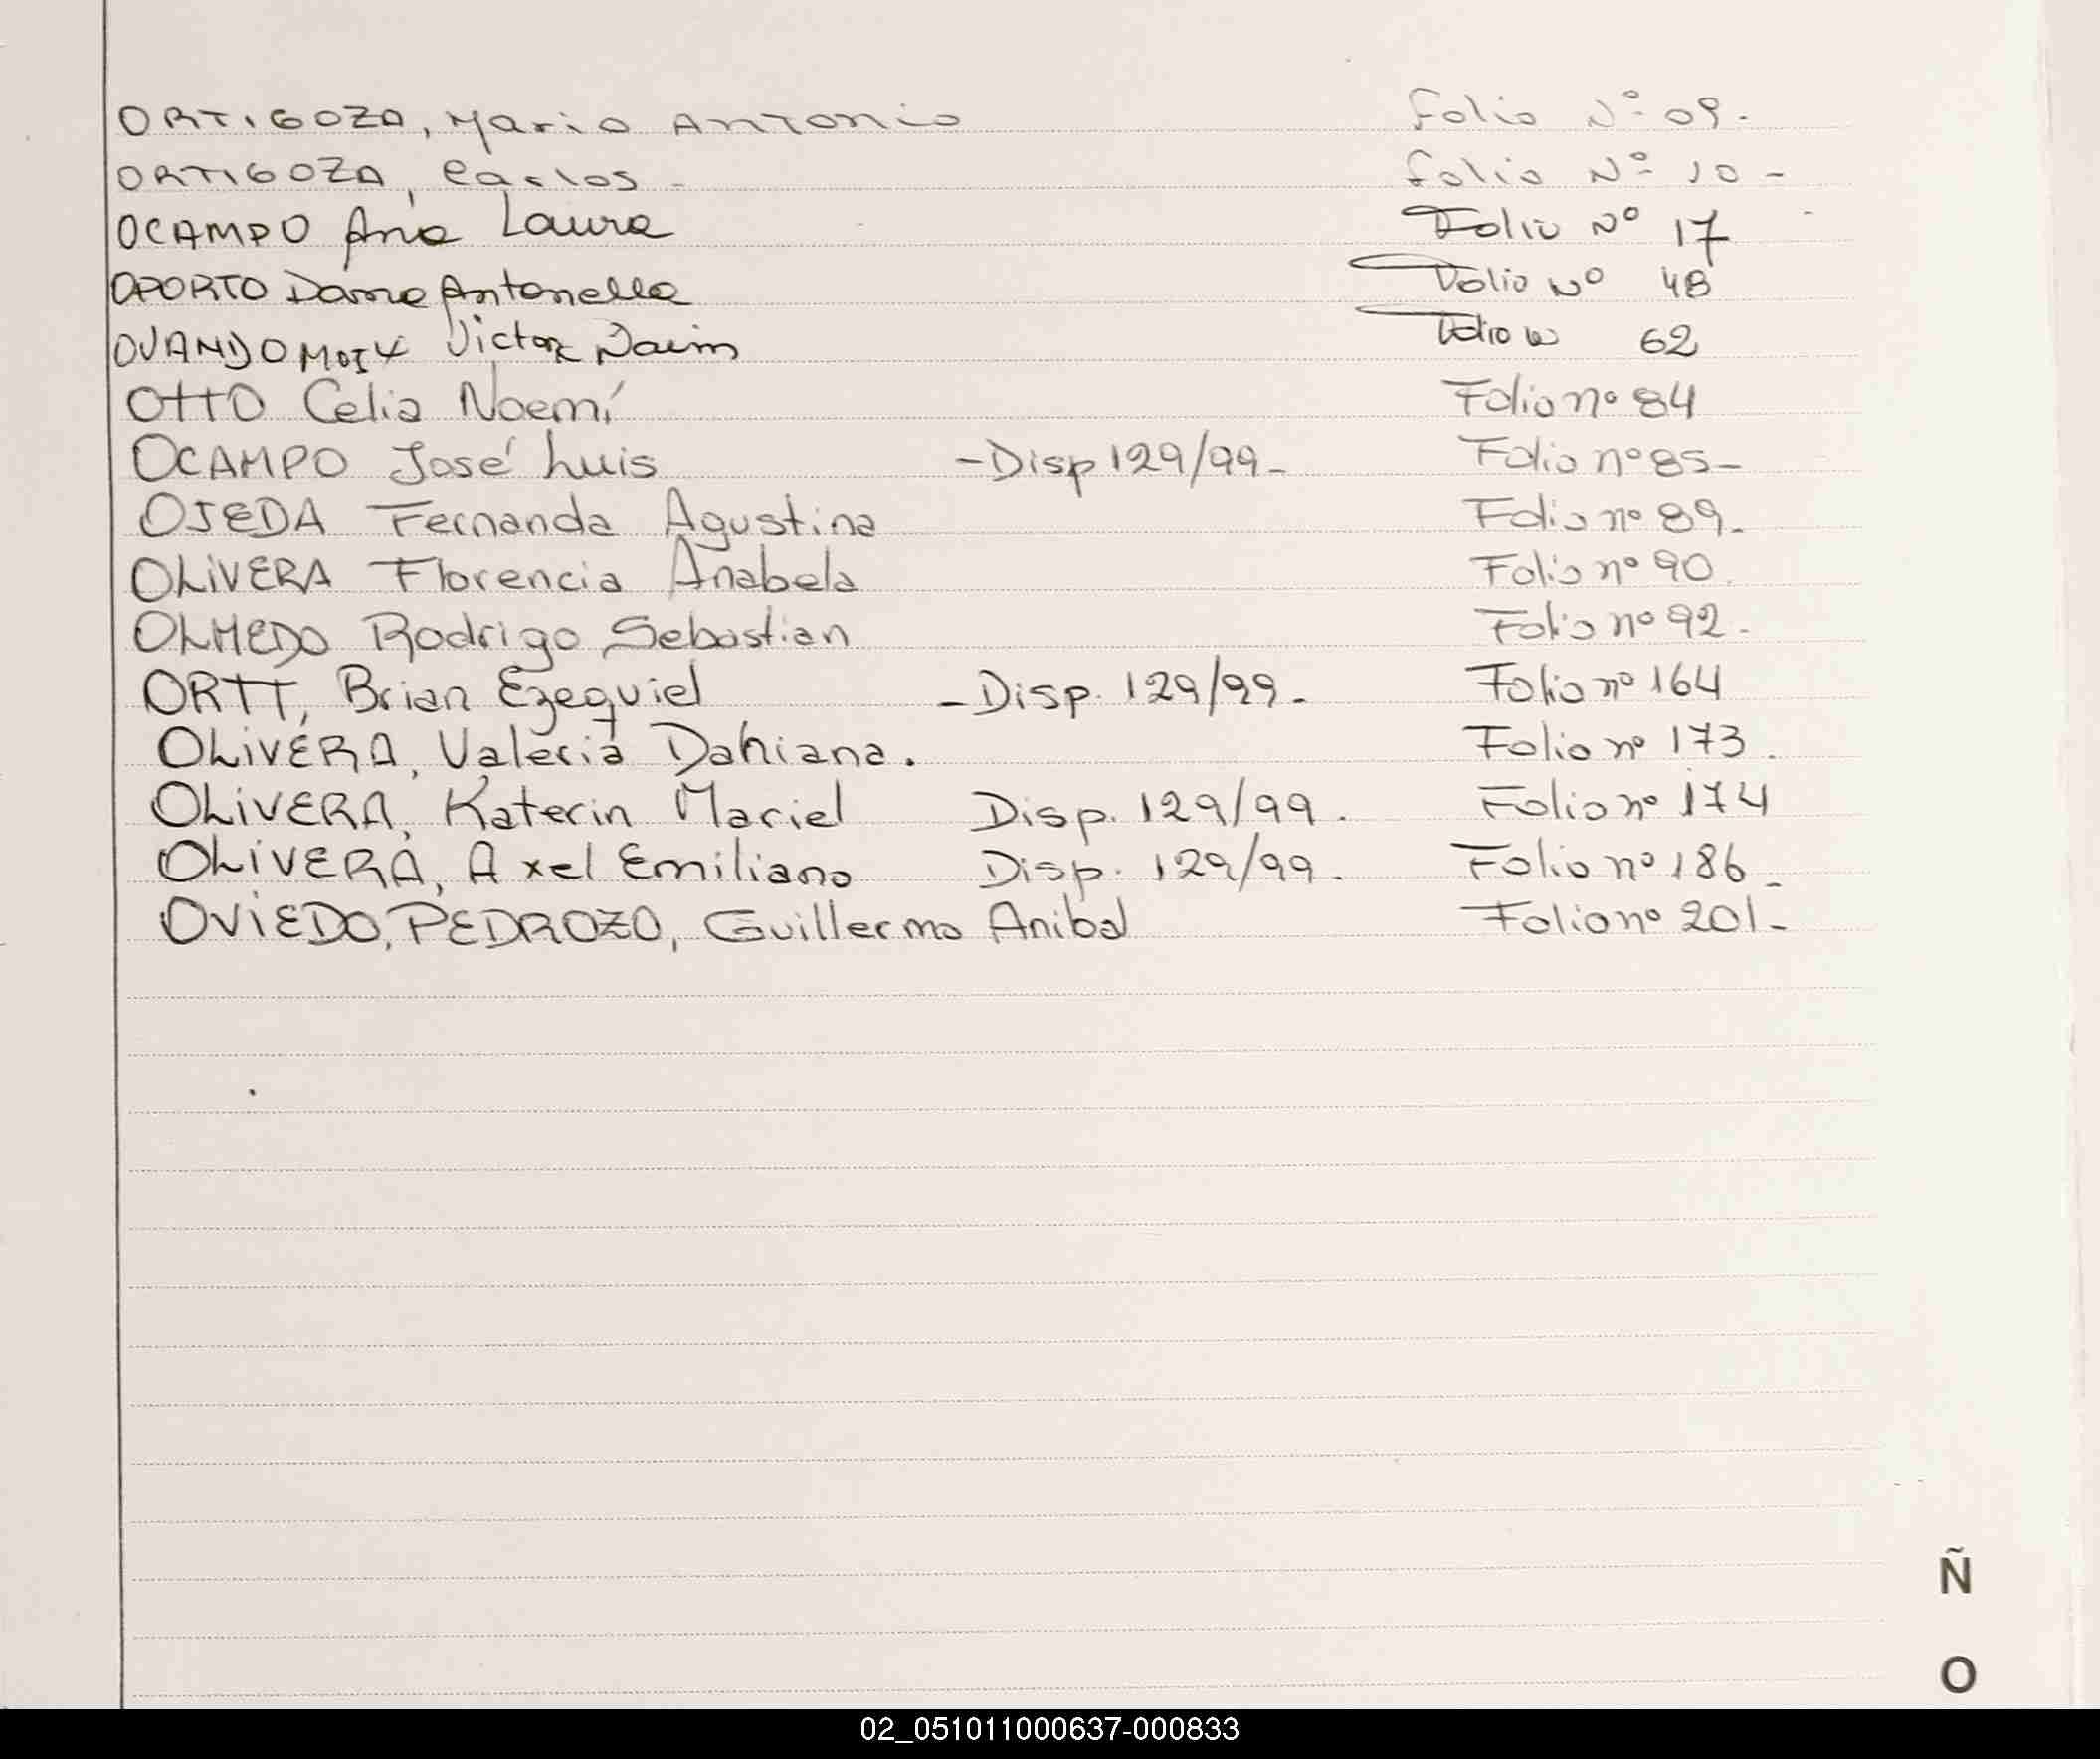 ORTIGOZA, Mario Antonio Folio Nº 09.
ORTIGOZA, Carlos - Folio Nº 10 -
OCAMPO Ana Laura Folio Nº 17
OPORTO Daina Antonella Folio Nº 48
OVANDO Victor Naim Folio Nº 62
OTTO Celia Noemí Folio nº 84
OCAMPO José Luis -Disp 129/99- Folio nº 85-
OJEDA Fernanda Agustina Folio nº 89.
OLiVERA Florencia Anabela Folio nº 90.
OLMEDO Rodrigo Sebastian Folio nº 92.
ORTT, Brian Ezequiel -Disp. 129/99. Folio nº 164
OLiVERA, Valeria Dahiana. Folio nº 173.
OLiVERA, Katerin Mariel Disp. 129/99. Folio nº 174
OLiVERA, Axel Emiliano Disp. 129/99. Folio nº 186.
OViEDO, PEDROZO, Guillermo Anibal Folio nº 201-
Ñ
O
02_051011000637-000833